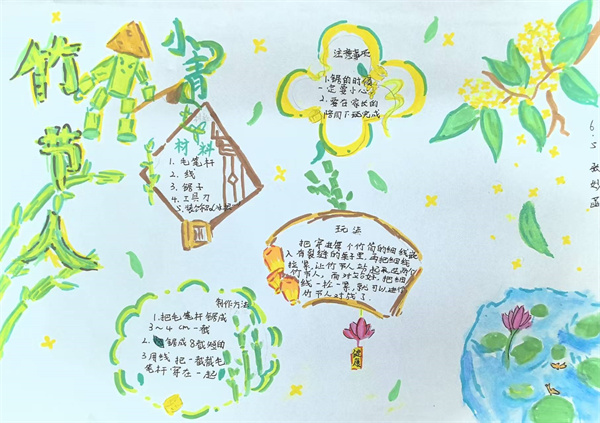 竹节人
小青
材料
1.毛笔杆
2.线
3.锯子
4.工具刀
5.装饰
注意事项
1.锯的时候
一定要小心
2.要在家长的
陪同下完成
玩法
把穿进每个竹筒的细线嵌
入有裂缝的桌子里,再把细线
拉紧,让竹节人站起来,
竹节人,面对站好,把细
线一拉一紧,就可以
竹节人对战了。
制作方法
1.把毛笔杆锯成
3~4cm一截
2.锯成8截短的
3.用线把一截截毛
笔杆穿在一起
6.5